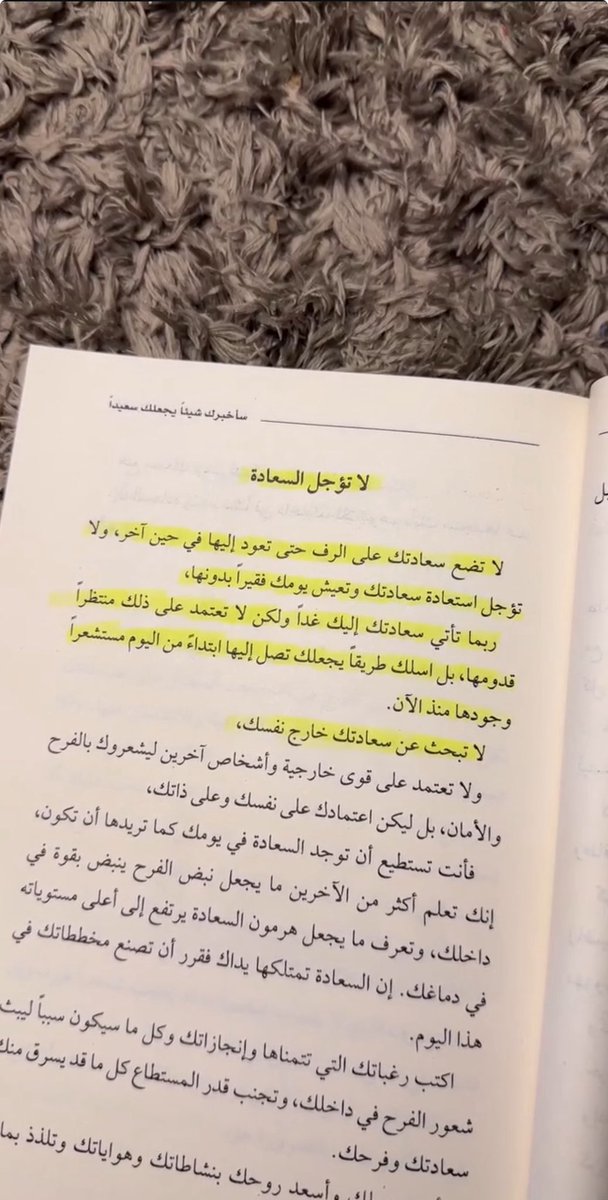 سأخبرك شيئاً يجعلك سعيداً
لا تؤجل السعادة
لا تضع سعادتك على الرف حتى تعود إليها في حين آخر، ولا
تؤجل استعادة سعادتك وتعيش يومك فقيراً بدونها،
ربما تأتي سعادتك إليك غداً ولكن لا تعتمد على ذلك منتظراً
قدومها، بل اسلك طريقاً يجعلك تصل إليها ابتداءً من اليوم مستشعراً
وجودها منذ الآن.
لا تبحث عن سعادتك خارج نفسك،
ولا تعتمد على قوى خارجية وأشخاص آخرين ليشعروك بالفرح
والأمان، بل ليكن اعتمادك على نفسك وعلى ذاتك،
فأنت تستطيع أن توجد السعادة في يومك كما تريدها أن تكون،
إنك تعلم أكثر من الآخرين ما يجعل نبض الفرح ينبض بقوة في
داخلك، وتعرف ما يجعل هرمون السعادة يرتفع إلى أعلى مستوياته
في دماغك. إن السعادة تمتلكها يداك فقرر أن تصنع مخططاتك في
هذا اليوم.
اكتب رغباتك التي تتمناها وإنجازاتك وكل ما سيكون سبباً ليبث
شعور الفرح في داخلك، وتجنب قدر المستطاع كل ما قد يسرق منك
سعادتك وفرحك.
وأسعد روحك بنشاطاتك وهواياتك وتلذذ بما